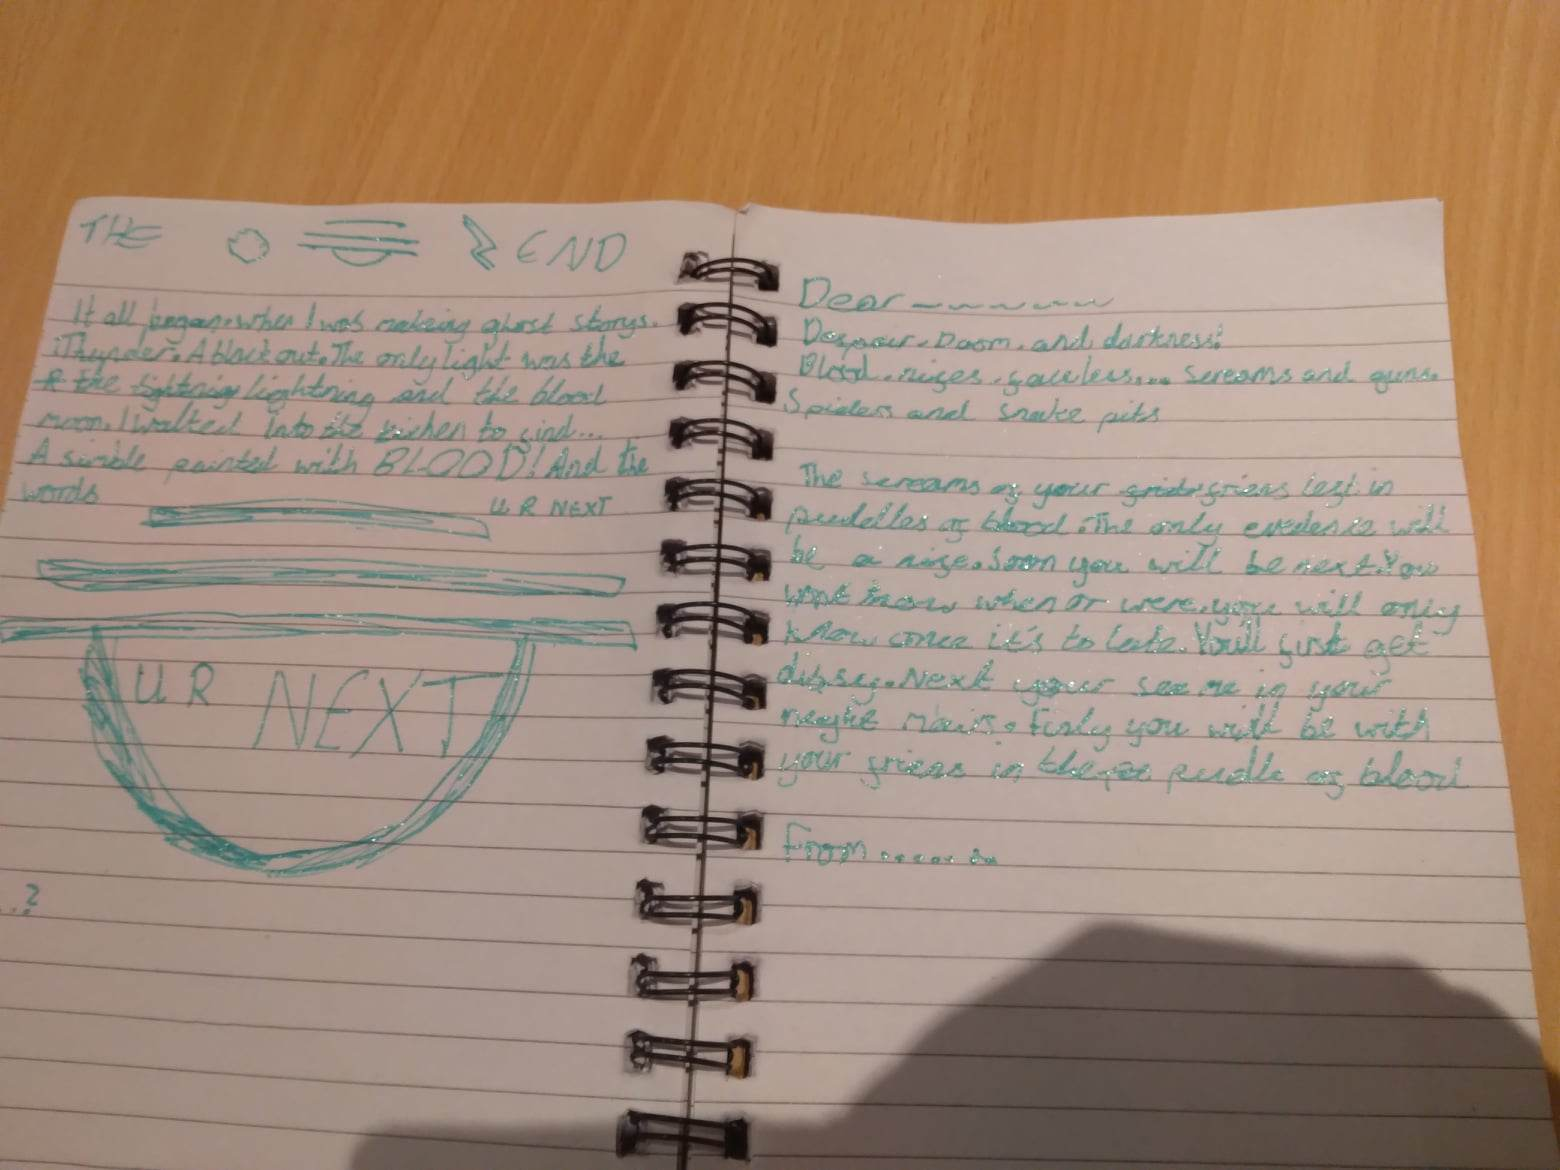 THE END
It all began when I was making ghost storys.
Thunder. A black out. The only light was the
the lightning and the blood
moon. I walked into the kichen to find...
A simble painted with BLOOD! And the
words
U R NEXT
U R NEXT
...?
Dear
Despair. Doom. and darkness!
Blood. nifes. faceless.... screams and guns.
Spiders and snake pits
The screams of your friens left in
puddles of blood. The only evedence will
be a nife. Soon you will be next. You
wont know when or were, you will only
know once it's to late. You'll just get
dibsy. Next your see me in your
Finly you will be with
your friens in the pudle of blood
From